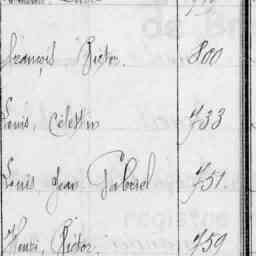 François Victor. 800
Louis, Célestin 733
Louis, Jean Gabriel 751
Henri, Victor. 759